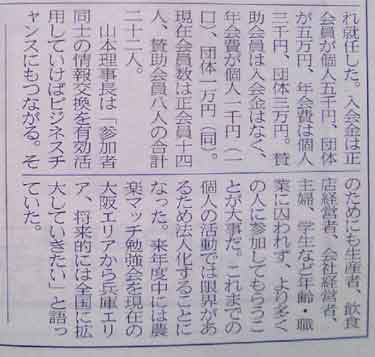 れ就任した。入会金は正
会員が個人五千円、団体
が五万円、年会費は個人
三千円、団体三万円。賛
助会員は入会金はなく、
年会費が個人一千円（一
口）、団体一万円（同）。
現在会員数は正会員十四
人、賛助会員八人の合計
二十二人。
山本理事長は「参加者
同士の情報交換を有効活
用していけばビジネスチ
ャンスにもつながる。そ
のためにも生産者、飲食
店経営者、会社経営者、
主婦、学生など年齢・職
業に囚われず、より多く
の人に参加してもらうこ
とが大事だ。これまでの
個人の活動では限界があ
るため法人化することに
なった。来年度中には農
楽マッチ勉強会を現在の
大阪エリアから兵庫エリ
ア、将来的には全国に拡
大していきたい」と語っ
ていた。